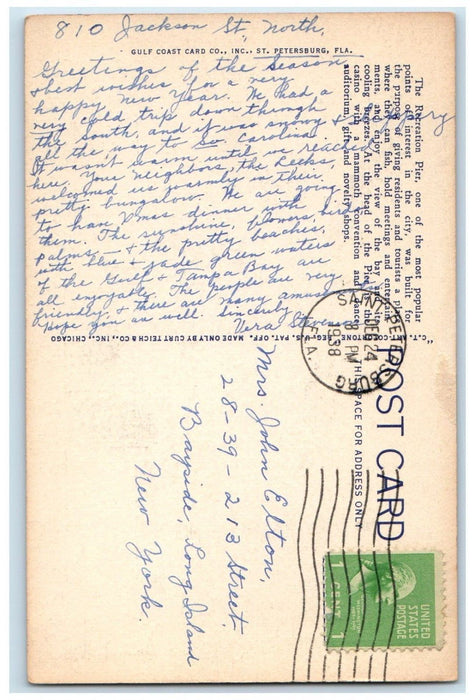 810 Jackson St., North,
GULF COAST CARD CO., INC., ST. PETERSBURG, FLA.
Greetings of the Season
& best wishes for a very
happy New Year. We had a
very cold trip down through
the South, and it was snowy & dreary
all the way to So. Carolina.
It wasn't warm until we reached
here. Your neighbors, the Lecks,
welcomed us warmly in their
pretty bungalow. We are going
to have Xmas dinner with
them. The sunshine, flowers, birds,
palms & the pretty beaches,
with blue & jade green waters
of the Gulf & Tampa Bay are
all enjoyable. The people are very
friendly, & there are many amuse
Hope you are well. Sincerely,
Vera Stevens
The Recreation Pier, one of the most popular
points of interest in the city, was built for
the purpose of giving residents and tourists a place
where they can fish, hold meetings and entertain
ments, and enjoy the view of the bay and its
cooling breezes. At the head of the Pier is the
casino with a mammoth convention and dance
auditorium, gift and novelty shops.
REG. U. S. PAT. OFF. MADE ONLY BY CURT TEICH & CO., INC., CHICAGO
POST CARD
THIS SPACE FOR ADDRESS ONLY
SAINT PETERSBURG
DEC 24
8 PM
1938
FLA.
UNITED
STATES
POSTAGE
1 CENT 1
Mrs. John Elton,
28-39-213 Street,
Bayside, Long Island
New York.